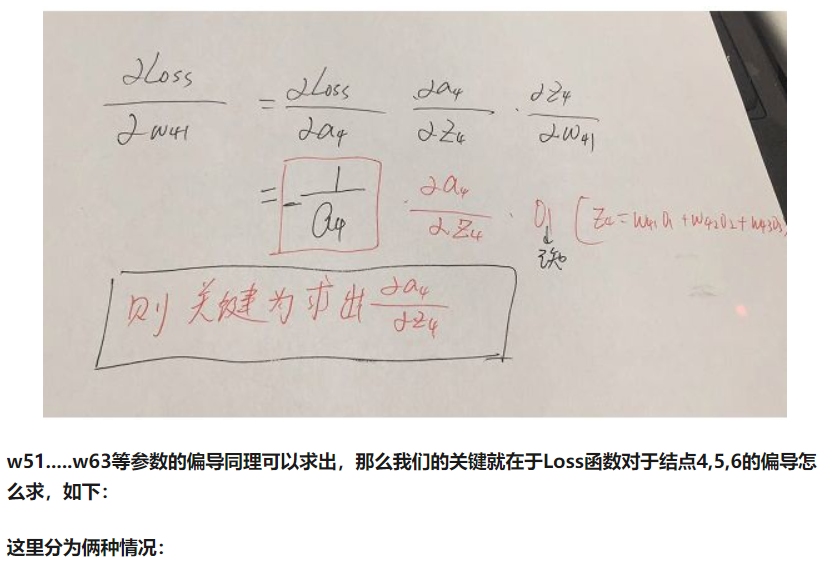 ∂Loss/∂w41 = ∂Loss/∂a4 · ∂a4/∂z4 · ∂z4/∂w41
= -1/a4 · ∂a4/∂z4 · o1 [z4=w41o1+w42o2+w43o3
↓
已知
则关键为求出 ∂a4/∂z4
w51.....w63等参数的偏导同理可以求出，那么我们的关键就在于Loss函数对于结点4,5,6的偏导怎
么求，如下：
这里分为俩种情况：